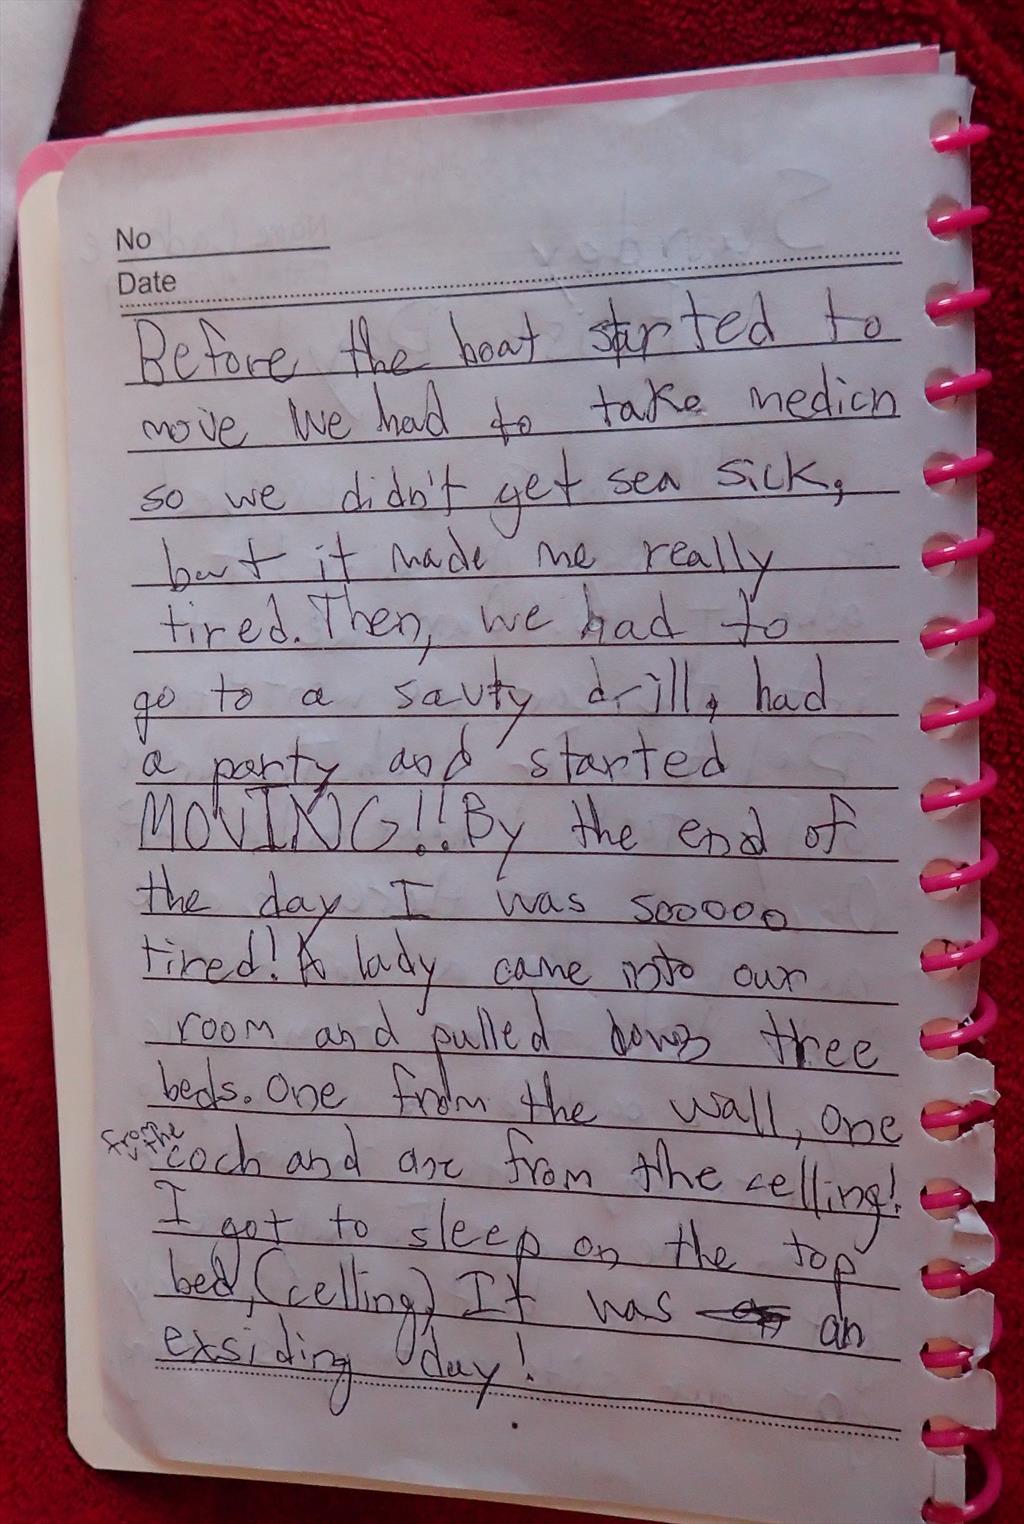 No
Date
Before the boat started to
move we had to take medicn
so we didn't get sea sick,
but it made me really
tired. Then, we had to
go to a savty drill, had
a party and started
MOVING!! By the end of
the day I was sooooo
tired! A lady came into our
room and pulled down three
beds. One from the wall, one
from the coch and one from the celling!
I got to sleep on the top
bed, (celling) It was an
exsiding day!